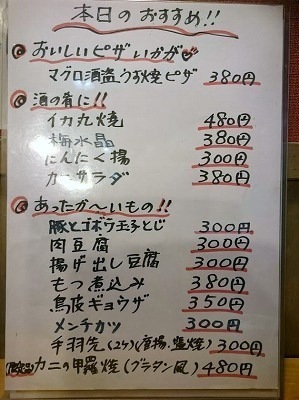 本日のおすすめ!!
おいしいピザいかが
マグロ酒盗うす焼ピザ 380円
酒の肴に!!
イカ丸焼 480円
梅水晶 380円
にんにく揚 300円
カニサラダ 380円
あったか〜いもの!!
豚とゴボウ玉子とじ 300円
肉豆腐 300円
揚げ出し豆腐 300円
もつ煮込み 380円
鳥皮ギョウザ 350円
メンチカツ 300円
手羽先(2ケ)(唐揚・塩焼) 300円
カニの甲羅焼(グラタン風) 480円